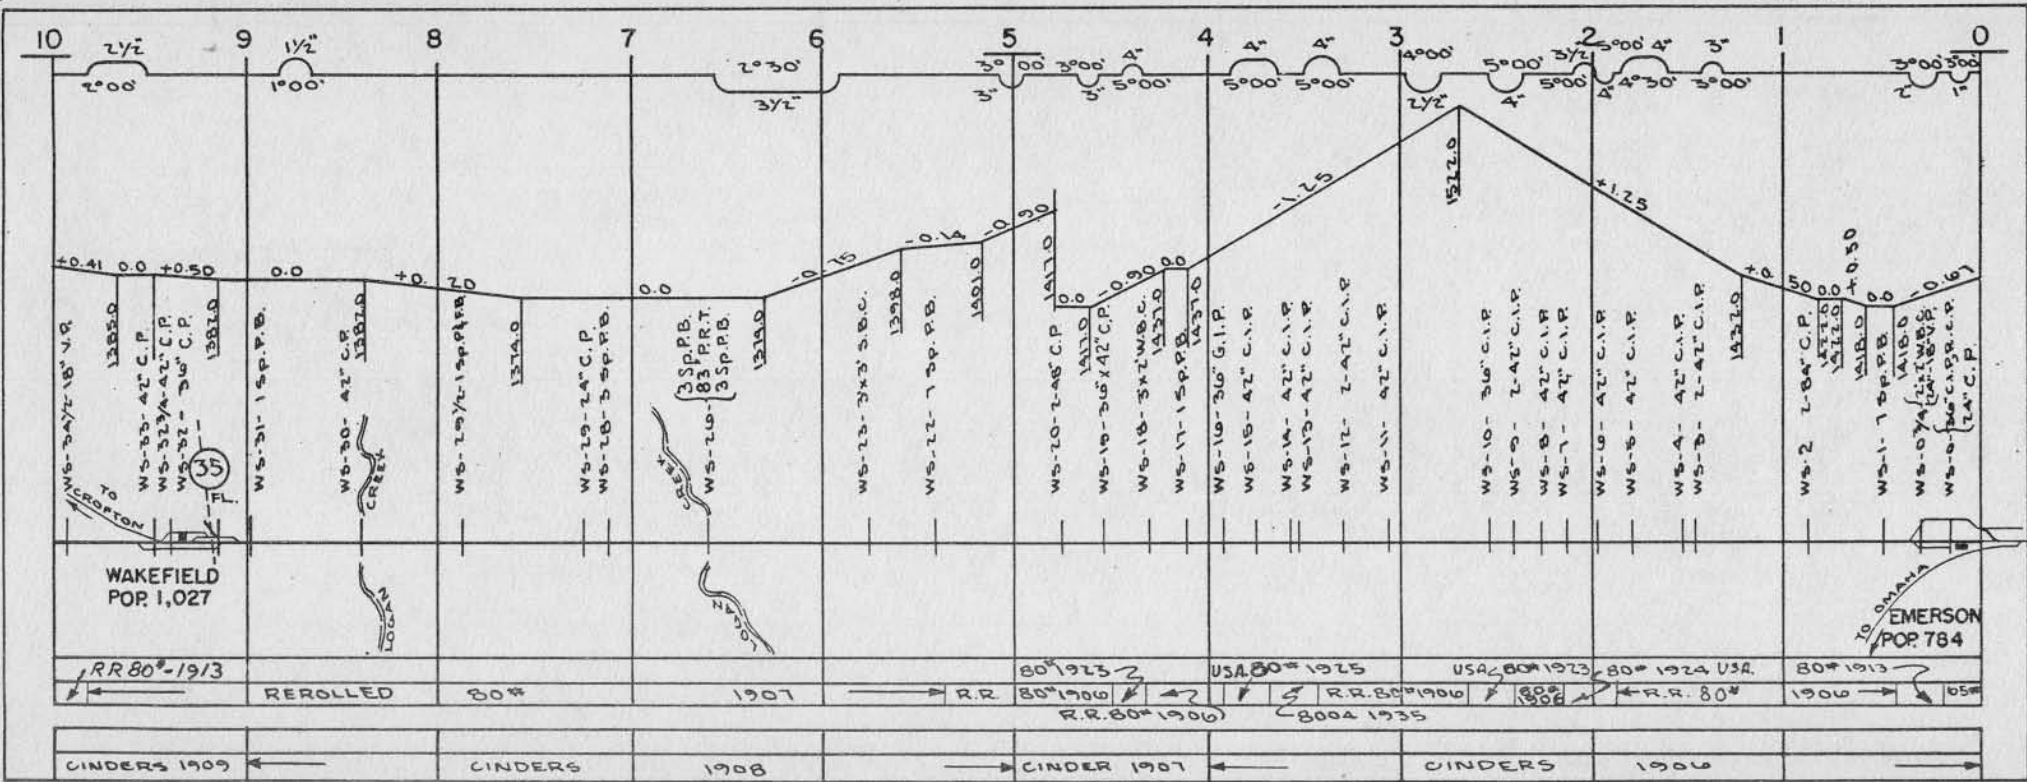 10 9 8 7 6 5 4 3 2 1 0
2½" 1½" 2°30' 3°00' 3°00' 4" 4" 4" 4°00' 5°00' 3½" 5°00' 4" 3" 3°00' 3°00'
2°00' 1°00' 3½" 3" 3" 5°00' 5°00' 5°00' 2½" 4" 5°00' 4" 4°30' 3°00' 2" 1"
+0.41 0.0 +0.50 0.0 +0.20 0.0 -0.75 -0.14 -0.90 0.0 -0.90 0.0 -1.25 +1.25 +0.50 0.0 +0.50 0.0 -0.67
1385.0
1382.0
1382.0
1374.0
1374.0
1398.0
1401.0
1417.0
1417.0
1437.0
1437.0
1522.0
1432.0
1422.0
1422.0
1418.0
1418.0
WS-34½-18" V.P.
WS-33-42" C.P.
WS-32¾-42" C.P.
WS-32-36" C.P.
WS-31-1 Sp. P.B.
WS-30-42" C.P.
WS-29½-1 Sp. P.&F.B.
WS-29-24" C.P.
WS-28-3 Sp. P.B.
WS-26-
3 Sp. P.B.
83' P.R.T.
3 Sp. P.B.
WS-23-3x3' S.B.C.
WS-22-7 Sp. P.B.
WS-20-2-48" C.P.
WS-19-36"x42" C.P.
WS-18-3x2' W.B.C.
WS-17-1 Sp. P.B.
WS-16-36" C.I.P.
WS-15-42" C.I.P.
WS-14-42" C.I.P.
WS-13-42" C.I.P.
WS-12-2-42" C.I.P.
WS-11-42" C.I.P.
WS-10-36" C.I.P.
WS-9-2-42" C.I.P.
WS-8-42" C.I.P.
WS-7-42" C.I.P.
WS-6-42" C.I.P.
WS-5-42" C.I.P.
WS-4-42" C.I.P.
WS-3-2-42" C.I.P.
WS-2 2-84" C.P.
WS-1-7 Sp. P.B.
WS-0¾
2x2' W.B.C.
24"-18" V.P.
WS-0-
36" C.I.P.&R.C.P.
24" C.P.
35
FL.
TO CROFTON
CREEK
LOGAN
CREEK
LOGAN
WAKEFIELD
POP. 1,027
TO OMAHA
EMERSON
POP. 784
RR 80#-1913 80# 1923 USA 80# 1925 USA 80# 1923 80# 1924 USA 80# 1913
REROLLED 80# 1907 R.R. 80# 1906 R.R. 80# 1906 80# 1906 R.R. 80# 1906 65#
R.R. 80# 1906 800A 1935
CINDERS 1909 CINDERS 1908 CINDER 1907 CINDERS 1906